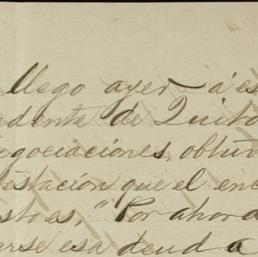 llego ayer á es
dente de Quito
gociaciones, obtuv
estación que el enc
sto es, "Por ahora
erse esa deuda